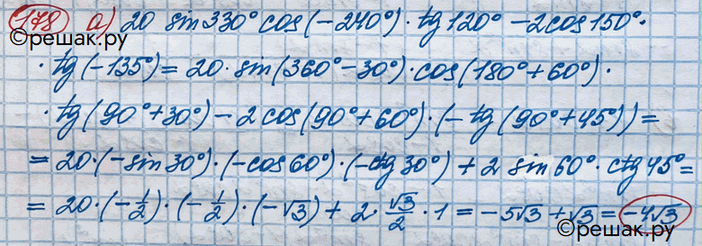 178 а) 20 sin330° cos(-240°)·tg120° - 2cos150°·
©решак.ру
· tg(-135°) = 20·sin(360°-30°)·cos(180°+60°)·
· tg(90°+30°) - 2cos(90°+60°)·(-tg(90°+45°)) =
= 20·(-sin30°)·(-cos60°)·(-ctg30°) + 2 sin60°·ctg45° =
= 20·(-1/2)·(-1/2)·(-√3) + 2·√3/2·1 = -5√3 + √3 = -4√3
©решак.ру